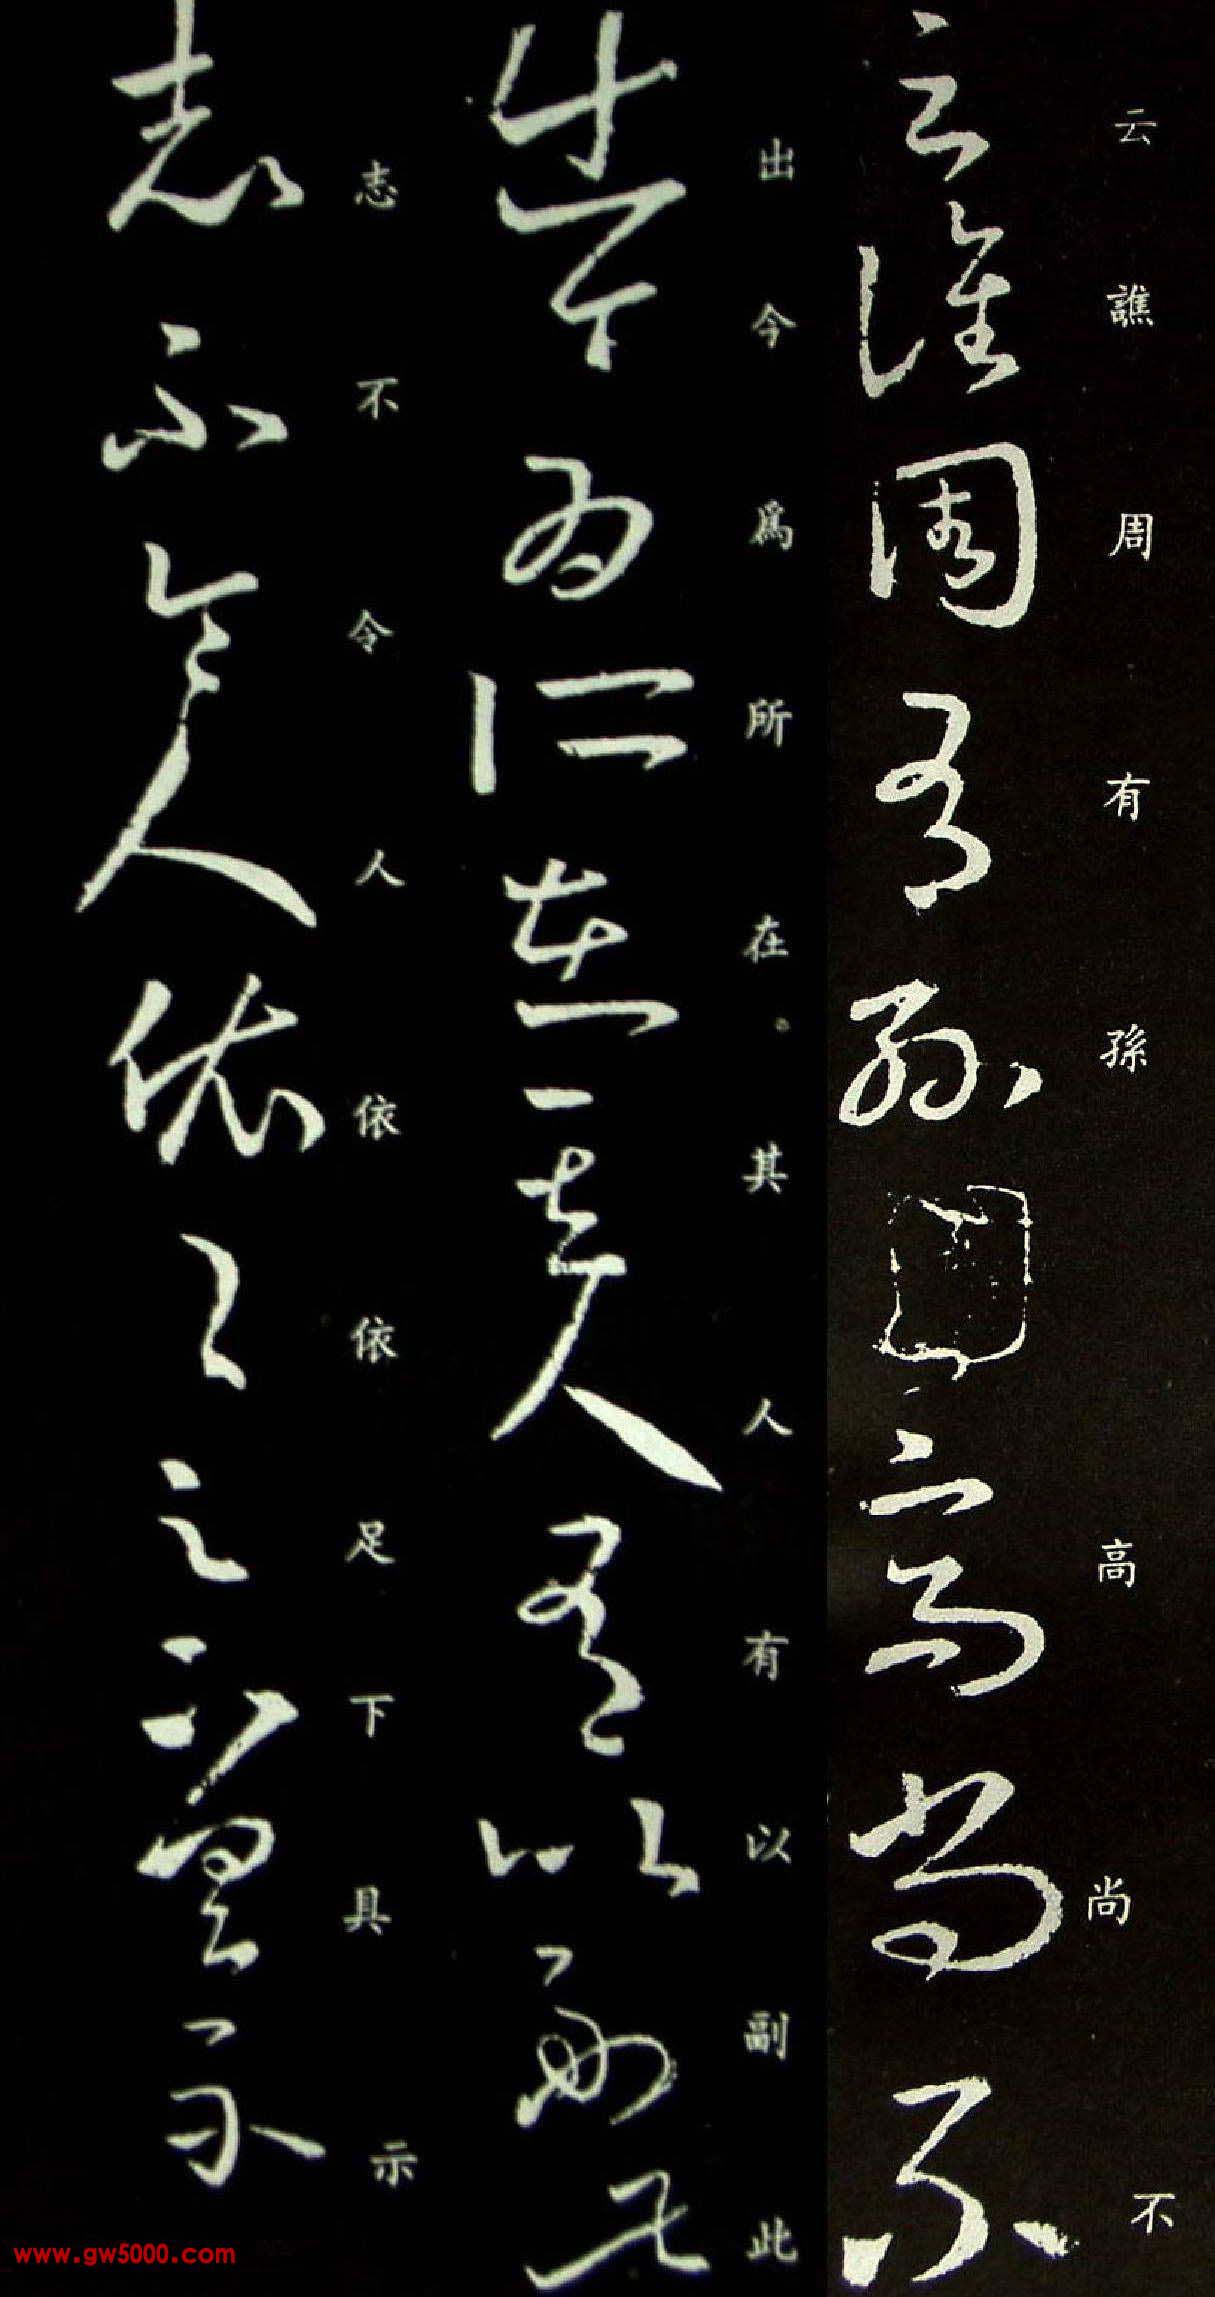 云譙周有孫高尚不
出今為所在。其人有以副此
志不令人依依足下具示
www.gw5000.com